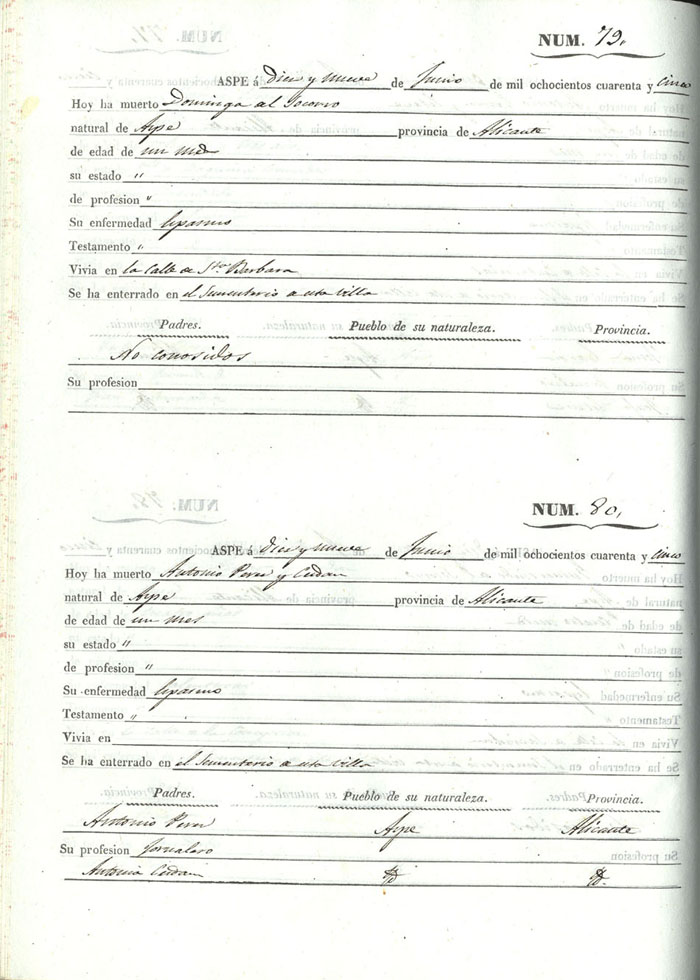 NUM. 79.
ASPE á diez y nueve de Junio de mil ochocientos cuarenta y cinco
Hoy ha muerto Dominga al Socorro
natural de Aspe provincia de Alicante
de edad de un mes
su estado "
de profesion "
Su enfermedad Espasmo
Testamento "
Vivia en la Calle de Sta. Barbara
Se ha enterrado en el Sementerio a esta Villa
Padres. Pueblo de su naturaleza. Provincia.
No conosidos
Su profesion
NUM. 80,
ASPE á diez y nueve de Junio de mil ochocientos cuarenta y cinco
Hoy ha muerto Antonio Perez y
natural de Aspe provincia de Alicante
de edad de un mes
su estado "
de profesion "
Su enfermedad Espasmo
Testamento "
Vivia en
Se ha enterrado en el Sementerio a esta Villa
Padres. Pueblo de su naturaleza. Provincia.
Antonio Perez Aspe Alicante
Su profesion Jornalero
Antonia